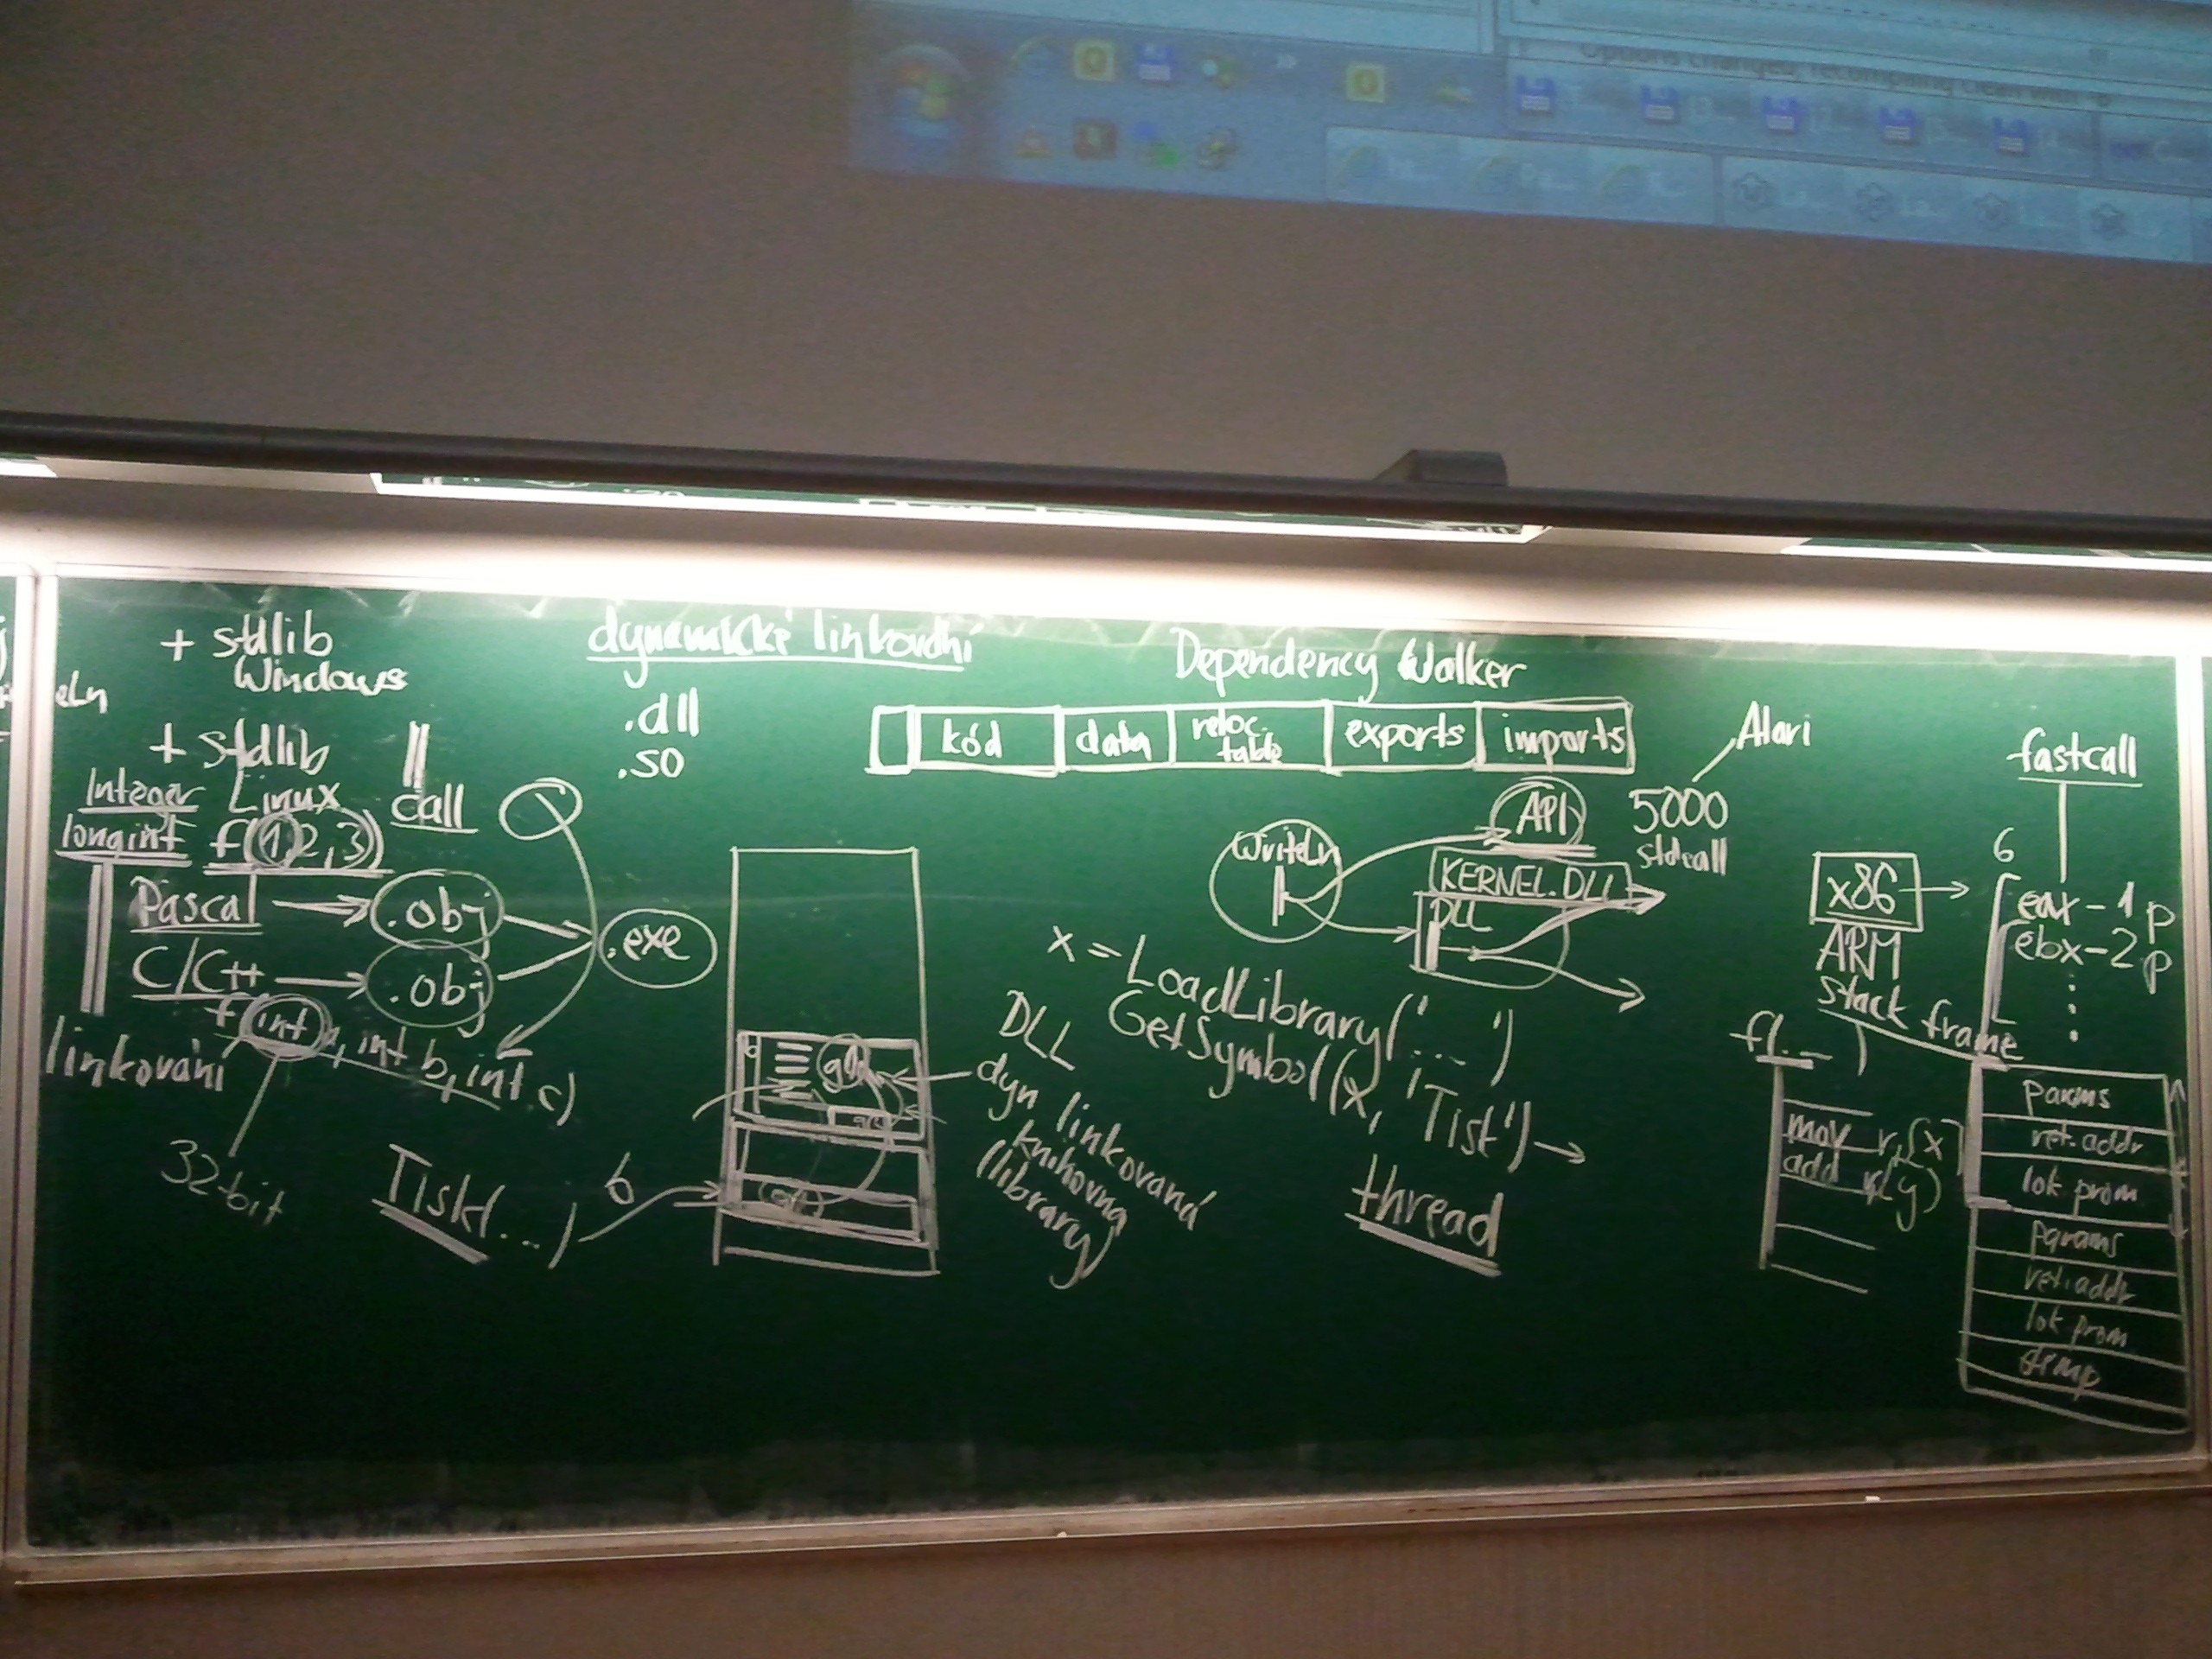 Options changed, recompiling clean with -B
+ stdlib
Windows
+ stdlib
Linux
call
Integer
longint
f(1,2,3)
Pascal
.obj
C/C++
.obj
.exe
f(int a, int b, int c)
linkování
32-bit
Tisk(...)
6
dynamické linkování
.dll
.so
g()
DLL
dyn linkovaná
knihovna
(library)
Dependency Walker
kód
data
reloc.
table
exports
imports
WriteLn
API
KERNEL.DLL
DLL
5000
stdcall
Atari
x = LoadLibrary('...')
GetSymbol(x, 'Tisk')
thread
x86
ARM
stack frame
f(...)
mov r,[x]
add r,[y]
fastcall
6
eax - 1 p
ebx - 2 p
params
ret. addr
lok prom
params
ret. addr
lok prom
temp